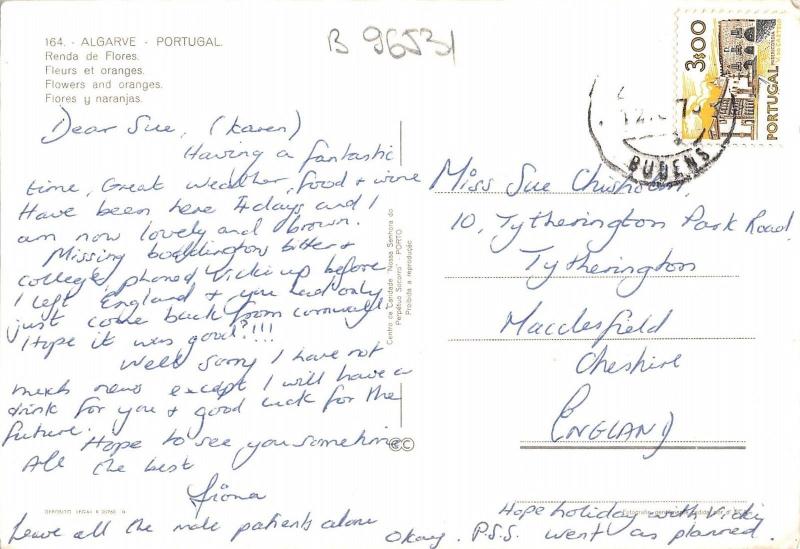 B 96531
164. - ALGARVE - PORTUGAL.
Renda de Flores.
Fleurs et oranges.
Flowers and oranges.
Flores y naranjas.
3$00
PORTUGAL
BUDENS
Dear Sue, (Karen)
Having a fantastic
time, Great weather, food + wine
Have been here 4 days and I
am now lovely and brown.
Missing boddingtons bitter +
college, phoned Vicki up before
I left England + you had only
just come back from cornwall.
I hope it was good?!!!
Well sorry I have not
much news except I will have a
drink for you + good luck for the
future.
Hope to see you sometime
All the best
Fiona
Leave all the male patients alone
Okay. P.S.S. Hope holiday with Vicky
went as planned.
Miss Sue Chisholm,
10, Tytherington Park Road,
Tytherington
Macclesfield
Cheshire
ENGLAND
Centro da Caridade "Nossa Senhora do
Perpétuo Socorro" - PORTO
Proibida a reprodução